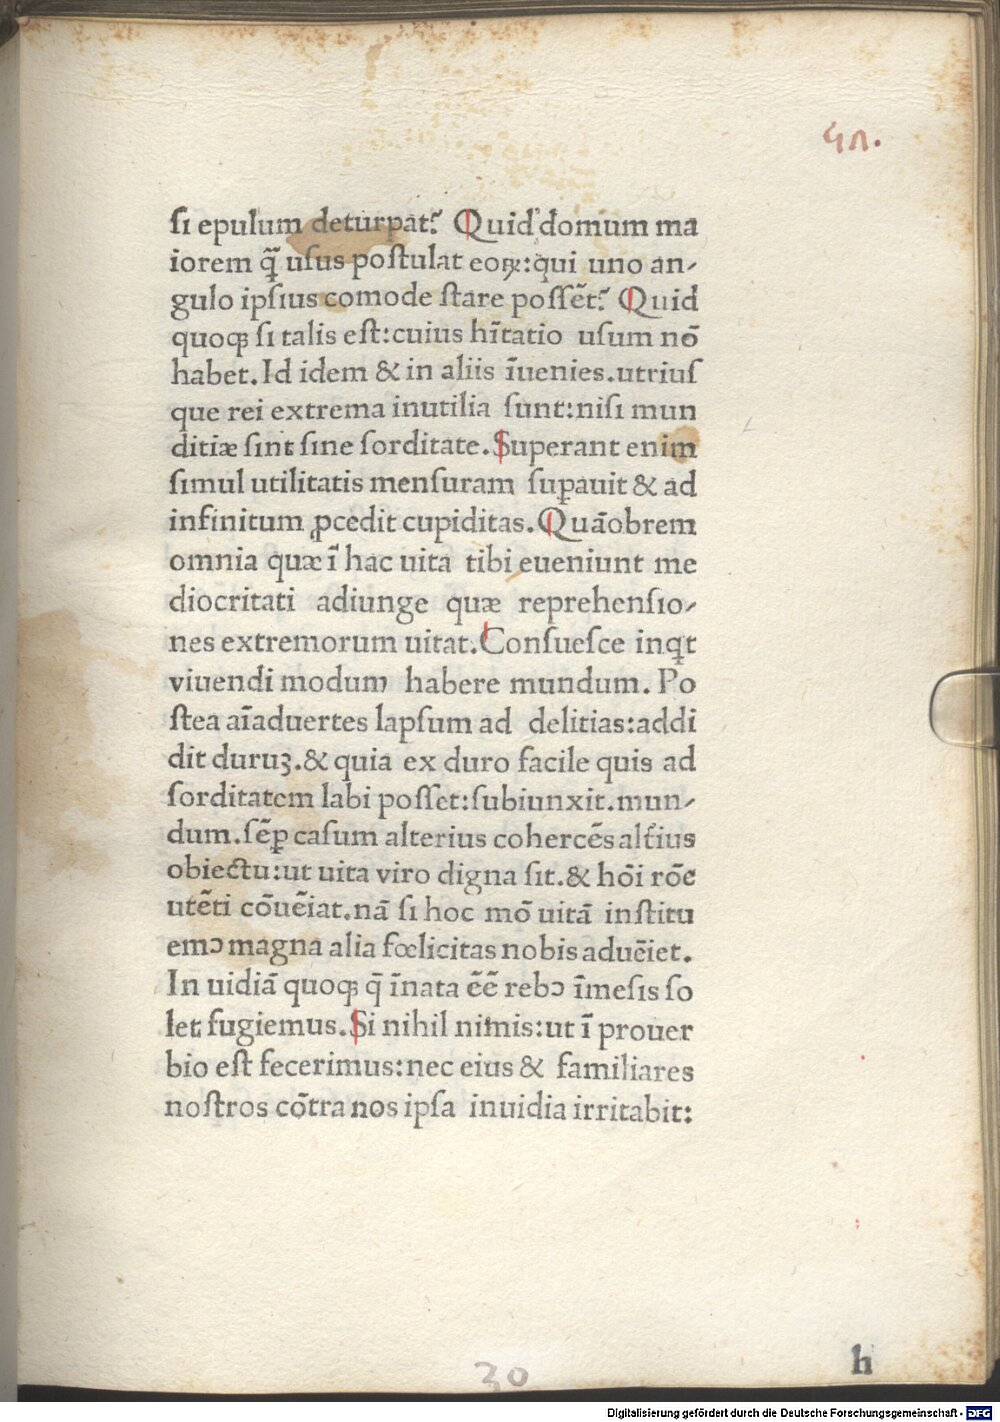 41.
ſi epulum deturpat? Quid domum ma
iorem q̃ uſus poſtulat eoꝝ:qui uno an-
gulo ipſius comode ſtare poſſẽt? Quid
quoqꝫ ſi talis eſt:cuius hĩtatio uſum nõ
habet.Id idem & in aliis ĩuenies.utriuſ
que rei extrema inutilia ſunt:niſi mun
ditiæ ſint ſine ſorditate.Superant enim
ſimul utilitatis menſuram ſuꝑauit & ad
infinitum ꝓcedit cupiditas.Quãobrem
omnia quæ ĩ hac uita tibi eueniunt me
diocritati adiunge quæ reprehenſio-
nes extremorum uitat.Conſueſce inqt
viuendi modum habere mundum. Po
ſtea aĩaduertes lapſum ad delitias:addi
dit duruꝫ.& quia ex duro facile quis ad
ſorditatem labi poſſet:ſubiunxit.mun-
dum.ſẽꝑ caſum alterius cohercẽs alt̃ius
obiectu:ut uita viro digna ſit.& hõi rõe
utẽti cõuẽiat.nã ſi hoc mõ uitã inſtitu
emꝯ magna alia fœlicitas nobis aduẽiet.
In uidiã quoqꝫ q̃ ĩnata ẽẽ rebꝯ ĩmeſis ſo
let fugiemus.Si nihil nimis:ut ĩ prouer
bio eſt fecerimus:nec eius & familiares
noſtros cõtra nos ipſa inuidia irritabit:
h
30
Digitalisierung gefördert durch die Deutsche Forschungsgemeinschaft - DFG